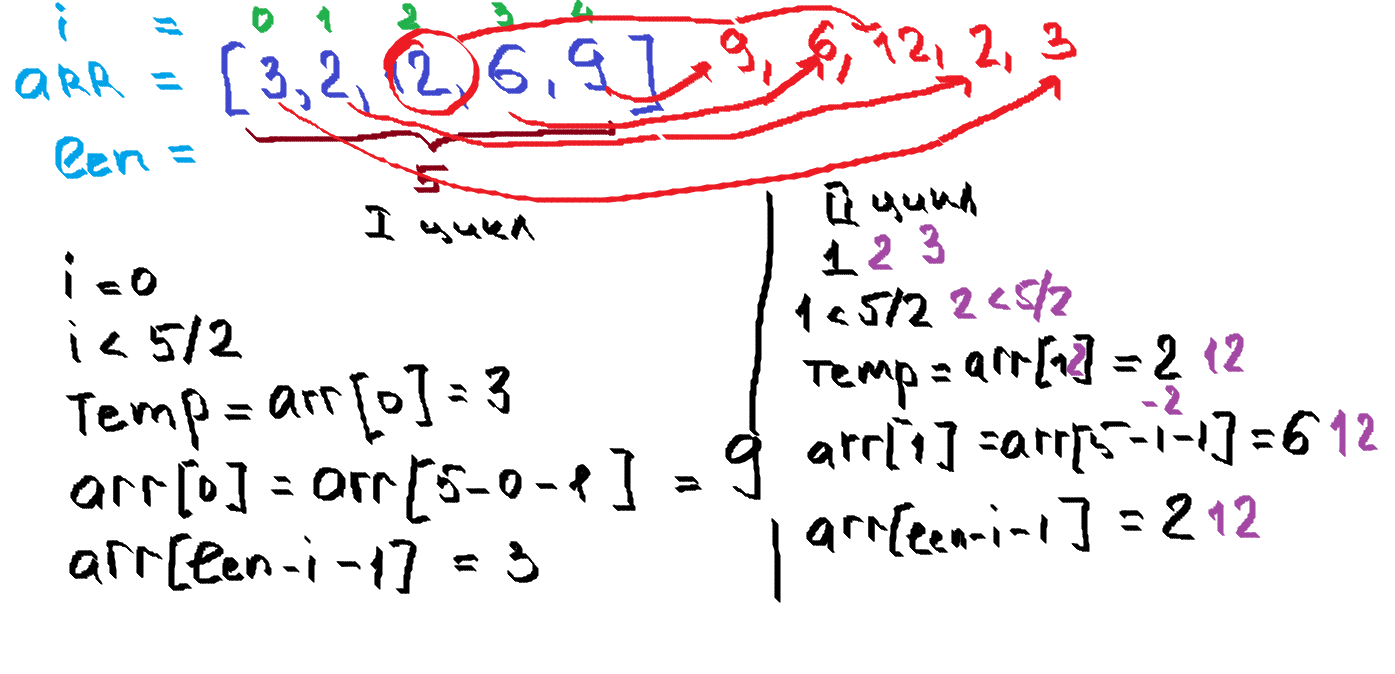 i = 0 1 2 3 4
arr = [3, 2, 12, 6, 9] 9, 6, 12, 2, 3
len = 5
I цикл
i = 0
i < 5/2
Temp = arr[0] = 3
arr[0] = arr[5-0-1] = 9
arr[len-i-1] = 3
II цикл
1 2 3
1 < 5/2 2 < 5/2
Temp = arr[1 2] = 2 12
-2
arr[1] = arr[5-1-1] = 6 12
arr[len-i-1] = 2 12